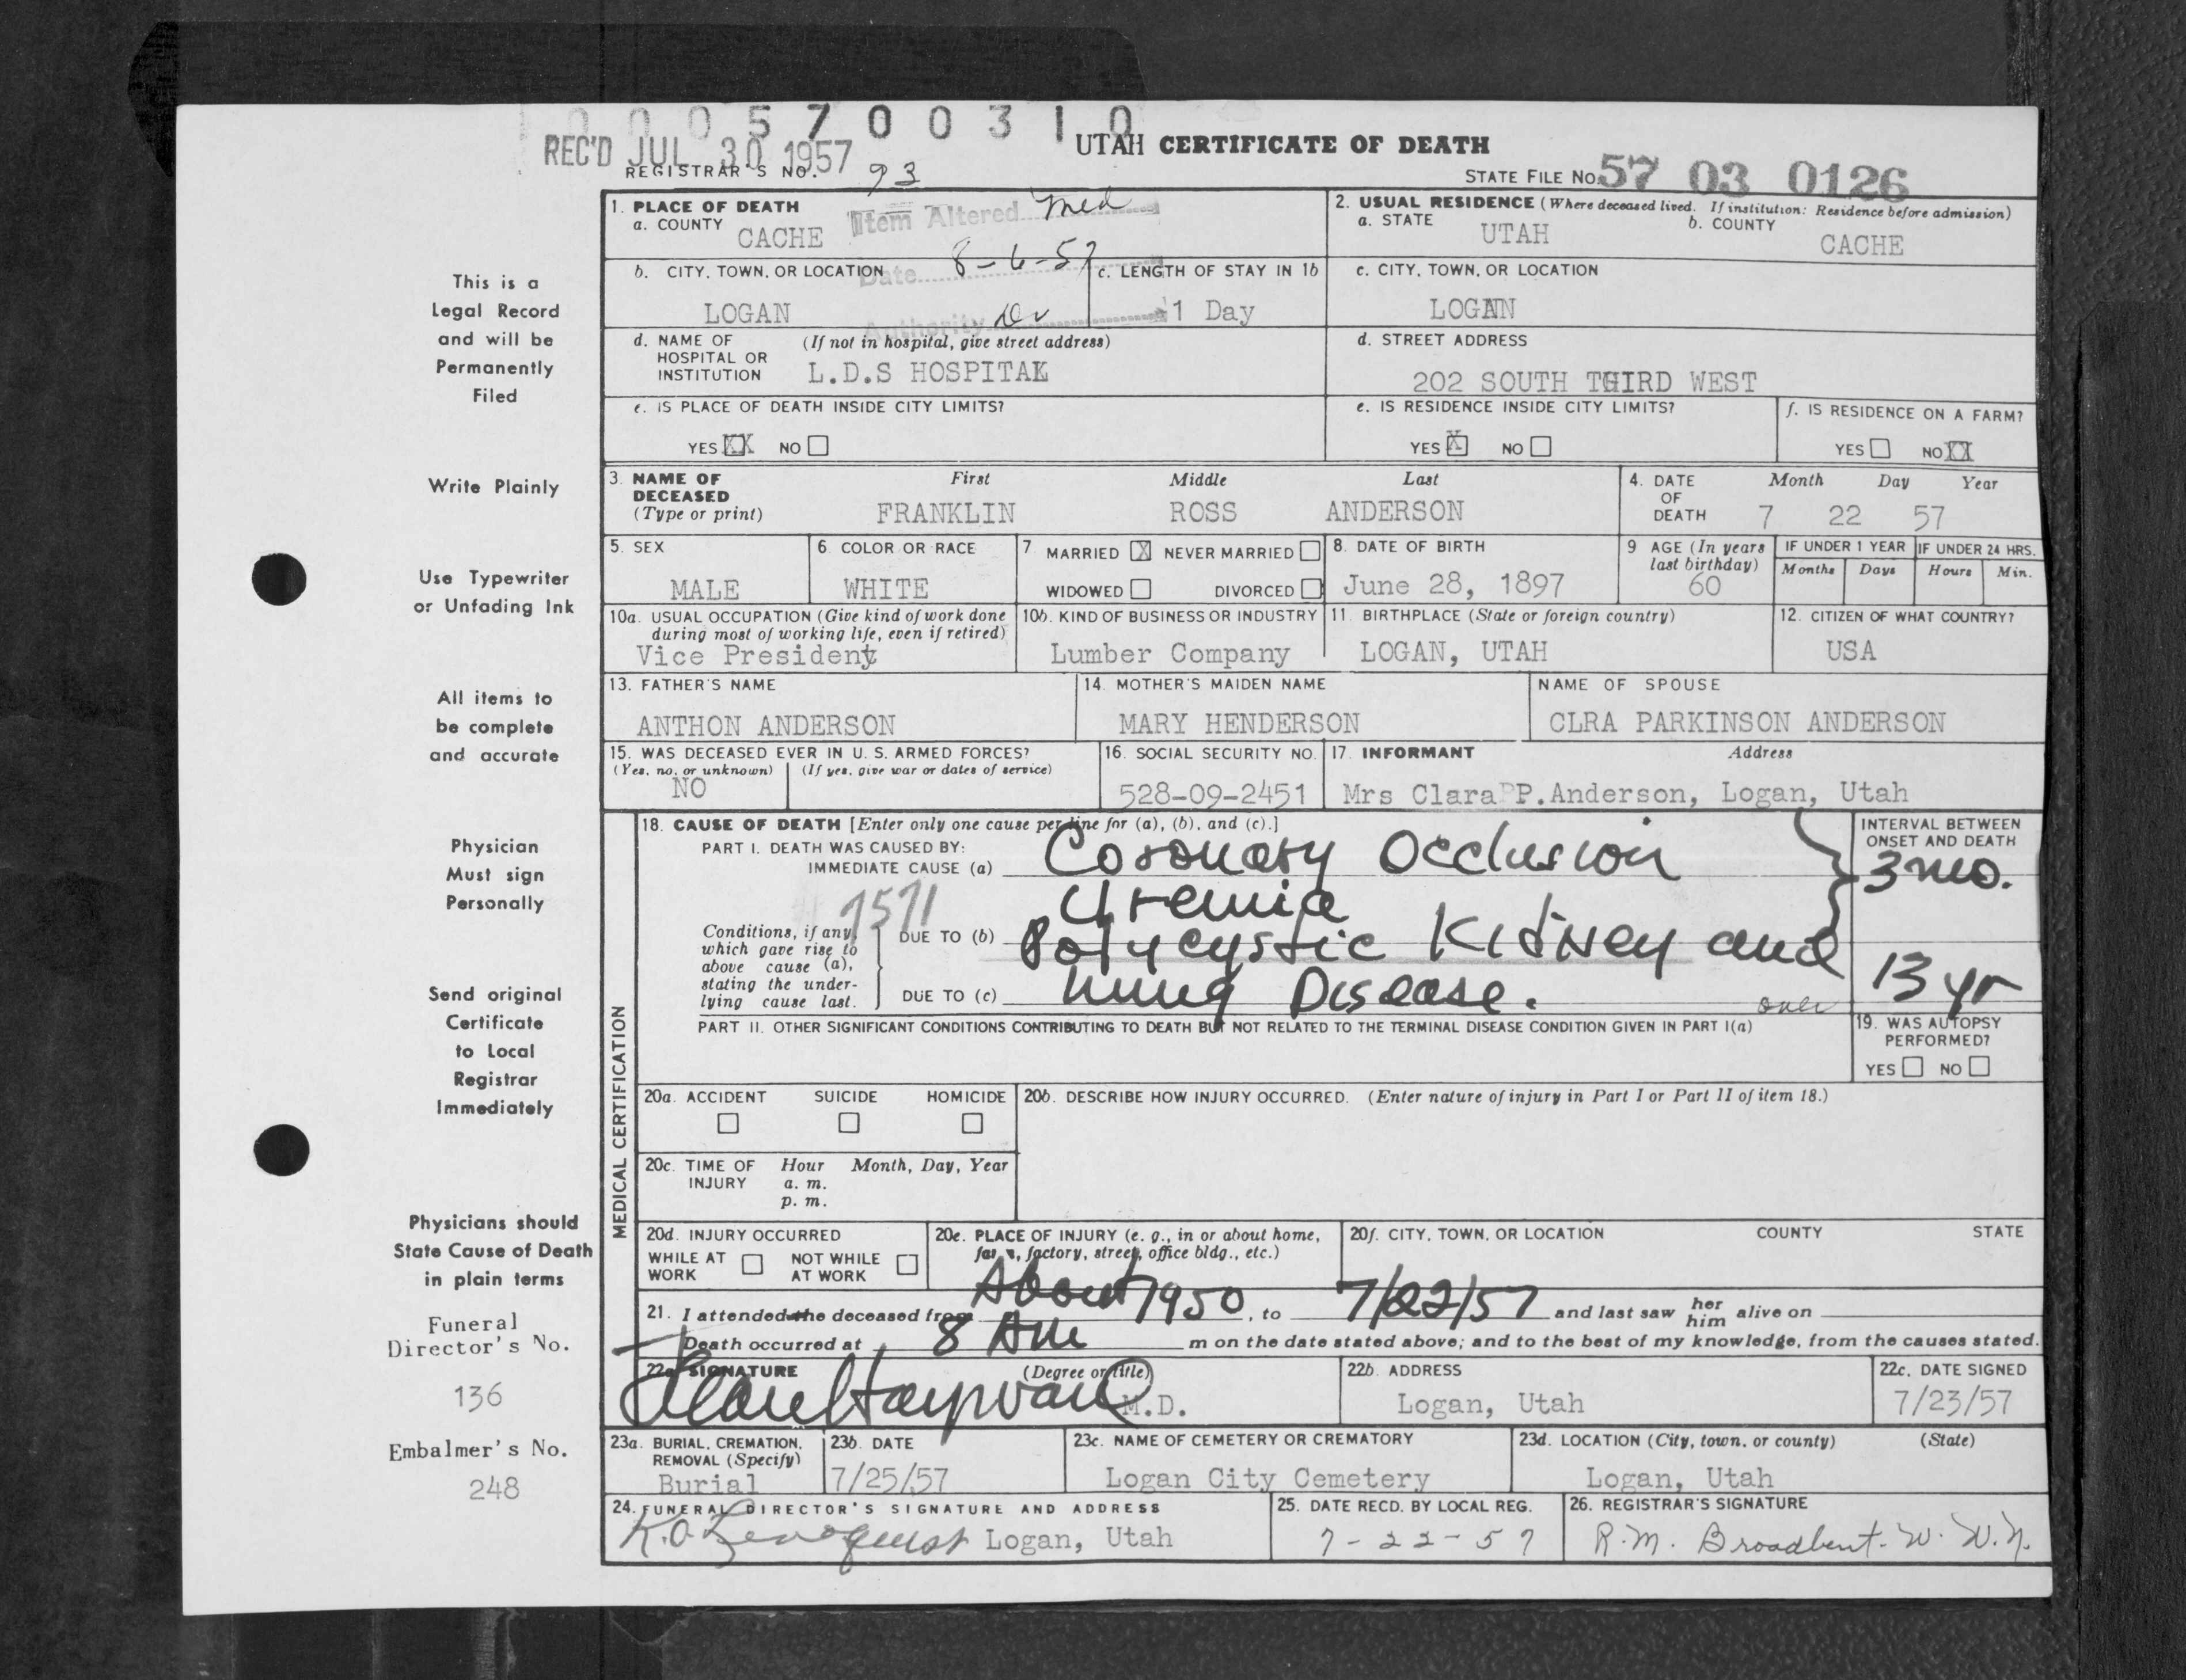 0005700310
REC'D JUL 30 1957
UTAH CERTIFICATE OF DEATH
REGISTRAR'S NO. 93
STATE FILE NO. 57 03 0126
1. PLACE OF DEATH
a. COUNTY CACHE
Item Altered Med
Date 8-6-57
Authority Dr
2. USUAL RESIDENCE (Where deceased lived. If institution: Residence before admission)
a. STATE UTAH b. COUNTY CACHE
b. CITY, TOWN, OR LOCATION LOGAN
c. LENGTH OF STAY IN 1b 1 Day
c. CITY, TOWN, OR LOCATION LOGAN
d. NAME OF HOSPITAL OR INSTITUTION (If not in hospital, give street address) L.D.S HOSPITAL
d. STREET ADDRESS
202 SOUTH THIRD WEST
e. IS PLACE OF DEATH INSIDE CITY LIMITS?
YES XX NO
e. IS RESIDENCE INSIDE CITY LIMITS?
YES X NO
f. IS RESIDENCE ON A FARM?
YES NO XX
3. NAME OF DECEASED (Type or print)
First Middle Last
FRANKLIN ROSS ANDERSON
4. DATE OF DEATH Month Day Year
7 22 57
5. SEX MALE
6. COLOR OR RACE WHITE
7. MARRIED X NEVER MARRIED
WIDOWED DIVORCED
8. DATE OF BIRTH
June 28, 1897
9 AGE (In years last birthday) 60
IF UNDER 1 YEAR Months Days
IF UNDER 24 HRS. Hours Min.
10a. USUAL OCCUPATION (Give kind of work done during most of working life, even if retired)
Vice President
10b. KIND OF BUSINESS OR INDUSTRY
Lumber Company
11. BIRTHPLACE (State or foreign country)
LOGAN, UTAH
12. CITIZEN OF WHAT COUNTRY?
USA
13. FATHER'S NAME
ANTHON ANDERSON
14. MOTHER'S MAIDEN NAME
MARY HENDERSON
NAME OF SPOUSE
CLRA PARKINSON ANDERSON
15. WAS DECEASED EVER IN U. S. ARMED FORCES?
(Yes, no, or unknown) (If yes, give war or dates of service)
NO
16. SOCIAL SECURITY NO.
528-09-2451
17. INFORMANT Address
Mrs Clara P.Anderson, Logan, Utah
MEDICAL CERTIFICATION
18. CAUSE OF DEATH [Enter only one cause per line for (a), (b), and (c).]
PART I. DEATH WAS CAUSED BY:
IMMEDIATE CAUSE (a) Coronary Occlusion
Uremia
7571
Conditions, if any, which gave rise to above cause (a), stating the underlying cause last.
DUE TO (b) Polycystic Kidney and
DUE TO (c) Lung Disease.
over
INTERVAL BETWEEN ONSET AND DEATH
3 mo.
13 yr
PART II. OTHER SIGNIFICANT CONDITIONS CONTRIBUTING TO DEATH BUT NOT RELATED TO THE TERMINAL DISEASE CONDITION GIVEN IN PART I(a)
19. WAS AUTOPSY PERFORMED?
YES NO
20a. ACCIDENT SUICIDE HOMICIDE
20b. DESCRIBE HOW INJURY OCCURRED. (Enter nature of injury in Part I or Part II of item 18.)
20c. TIME OF INJURY Hour Month, Day, Year
a. m.
p. m.
20d. INJURY OCCURRED
WHILE AT WORK NOT WHILE AT WORK
20e. PLACE OF INJURY (e. g., in or about home, farm, factory, street, office bldg., etc.)
20f. CITY, TOWN, OR LOCATION COUNTY STATE
21. I attended the deceased from About 1950, to 7/22/57 and last saw her him alive on
Death occurred at 8 AM m on the date stated above; and to the best of my knowledge, from the causes stated.
22a. SIGNATURE (Degree or title)
M.D.
22b. ADDRESS
Logan, Utah
22c. DATE SIGNED
7/23/57
23a. BURIAL, CREMATION, REMOVAL (Specify)
Burial
23b. DATE
7/25/57
23c. NAME OF CEMETERY OR CREMATORY
Logan City Cemetery
23d. LOCATION (City, town, or county) (State)
Logan, Utah
24. FUNERAL DIRECTOR'S SIGNATURE AND ADDRESS
Logan, Utah
25. DATE RECD. BY LOCAL REG.
7-22-57
26. REGISTRAR'S SIGNATURE
R.M. Broadbent
This is a
Legal Record
and will be
Permanently
Filed
Write Plainly
Use Typewriter
or Unfading Ink
All items to
be complete
and accurate
Physician
Must sign
Personally
Send original
Certificate
to Local
Registrar
Immediately
Physicians should
State Cause of Death
in plain terms
Funeral
Director's No.
136
Embalmer's No.
248